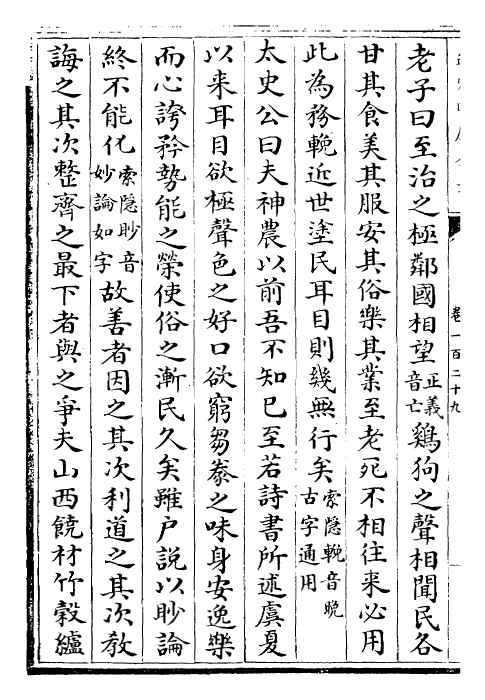 老子曰至治之極鄰國相望正義音亡鷄狗之聲相聞民各
甘其食美其服安其俗樂其業至老死不相往來必用
此為務輓近世塗民耳目則幾無行矣索隱輓音晚古字通用
太史公曰夫神農以前吾不知已至若詩書所述虞夏
以來耳目欲極聲色之好口欲窮芻豢之味身安逸樂
而心誇矜勢能之榮使俗之漸民久矣雖户說以眇論
終不能化索隱眇音妙論如字故善者因之其次利道之其次教
誨之其次整齊之最下者與之爭夫山西饒材竹穀纑
卷一百二十九